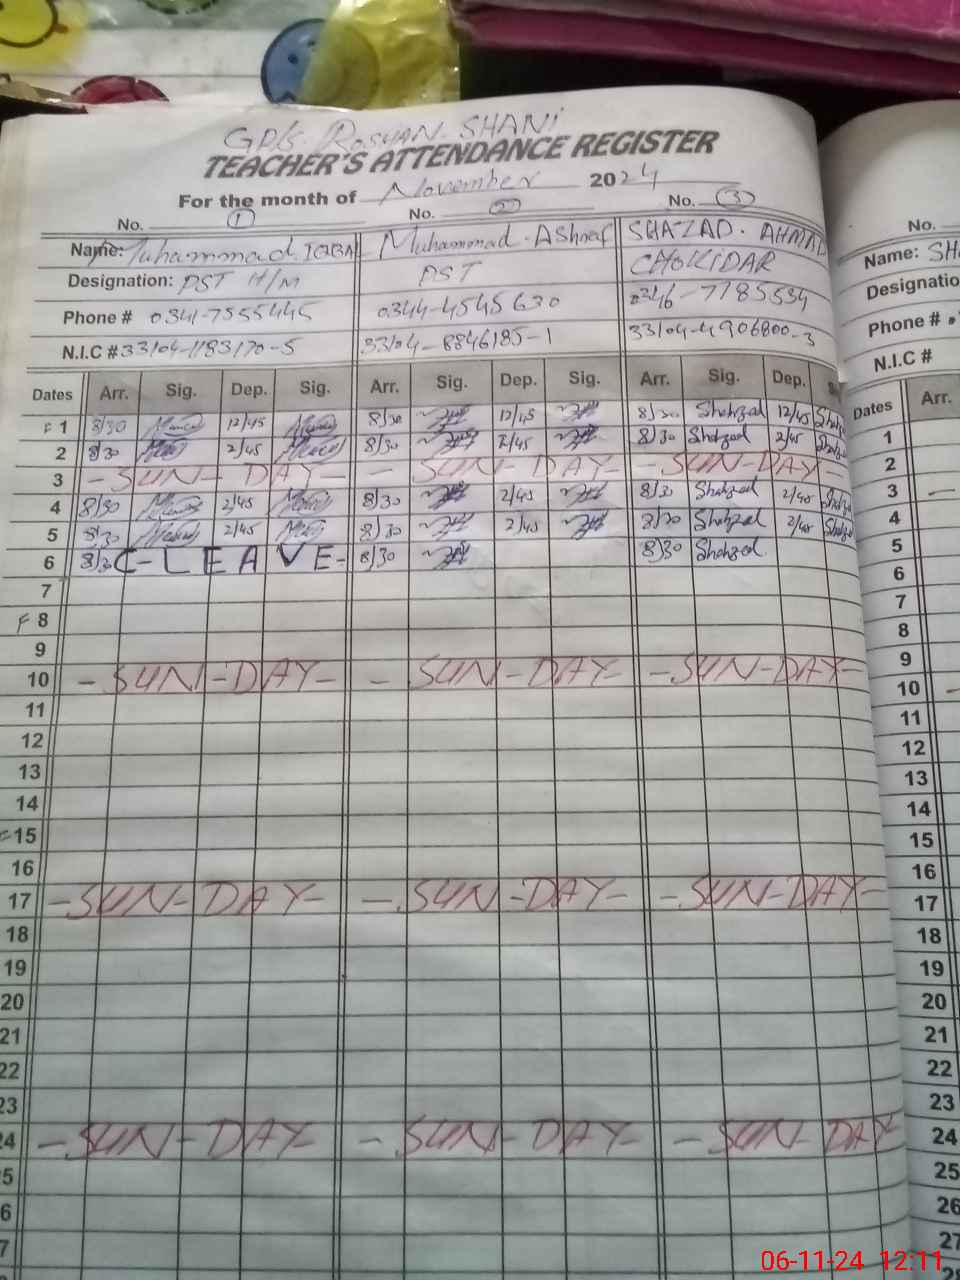 GP/S. ROSHAN. SHANI
TEACHER'S ATTENDANCE REGISTER
For the month of November 2024
No. 1 No. 2 No. 3
Name: Muhammad. IQBAL Muhammad. AShraf SHAZAD. AHMAD
Designation: PST H/M PST CHOKIDAR
Phone # 0341-7555445 0344-4545630 0346-7785534
N.I.C # 33104-1183170-5 33104-8846185-1 33104-4906800-3
Dates Arr. Sig. Dep. Sig. Arr. Sig. Dep. Sig. Arr. Sig. Dep.
F 1 8/30 12/45 8/30 12/45 8/30 Shahzad 12/45
2 8/30 2/45 8/30 2/45 8/30 Shahzad 2/45
3 - SUN - DAY - - SUN - DAY - - SUN - DAY -
4 8/30 2/45 8/30 2/45 8/30 Shahzad 2/45
5 8/30 2/45 8/30 2/45 8/30 Shahzad 2/45
6 8/30 C-LEAVE- 8/30 8/30 Shahzad
7
F 8
9
10 - SUN - DAY - - SUN - DAY - - SUN - DAY -
11
12
13
14
F 15
16
17 - SUN - DAY - - SUN - DAY - - SUN - DAY -
18
19
20
21
22
23
24 - SUN - DAY - - SUN - DAY - - SUN - DAY
No.
Name: SHA
Designatio
Phone #
N.I.C #
Dates Arr.
1
2
3
4
5
6
7
8
9
10
11
12
13
14
15
16
17
18
19
20
21
22
23
24
25
26
27
06-11-24 12:11